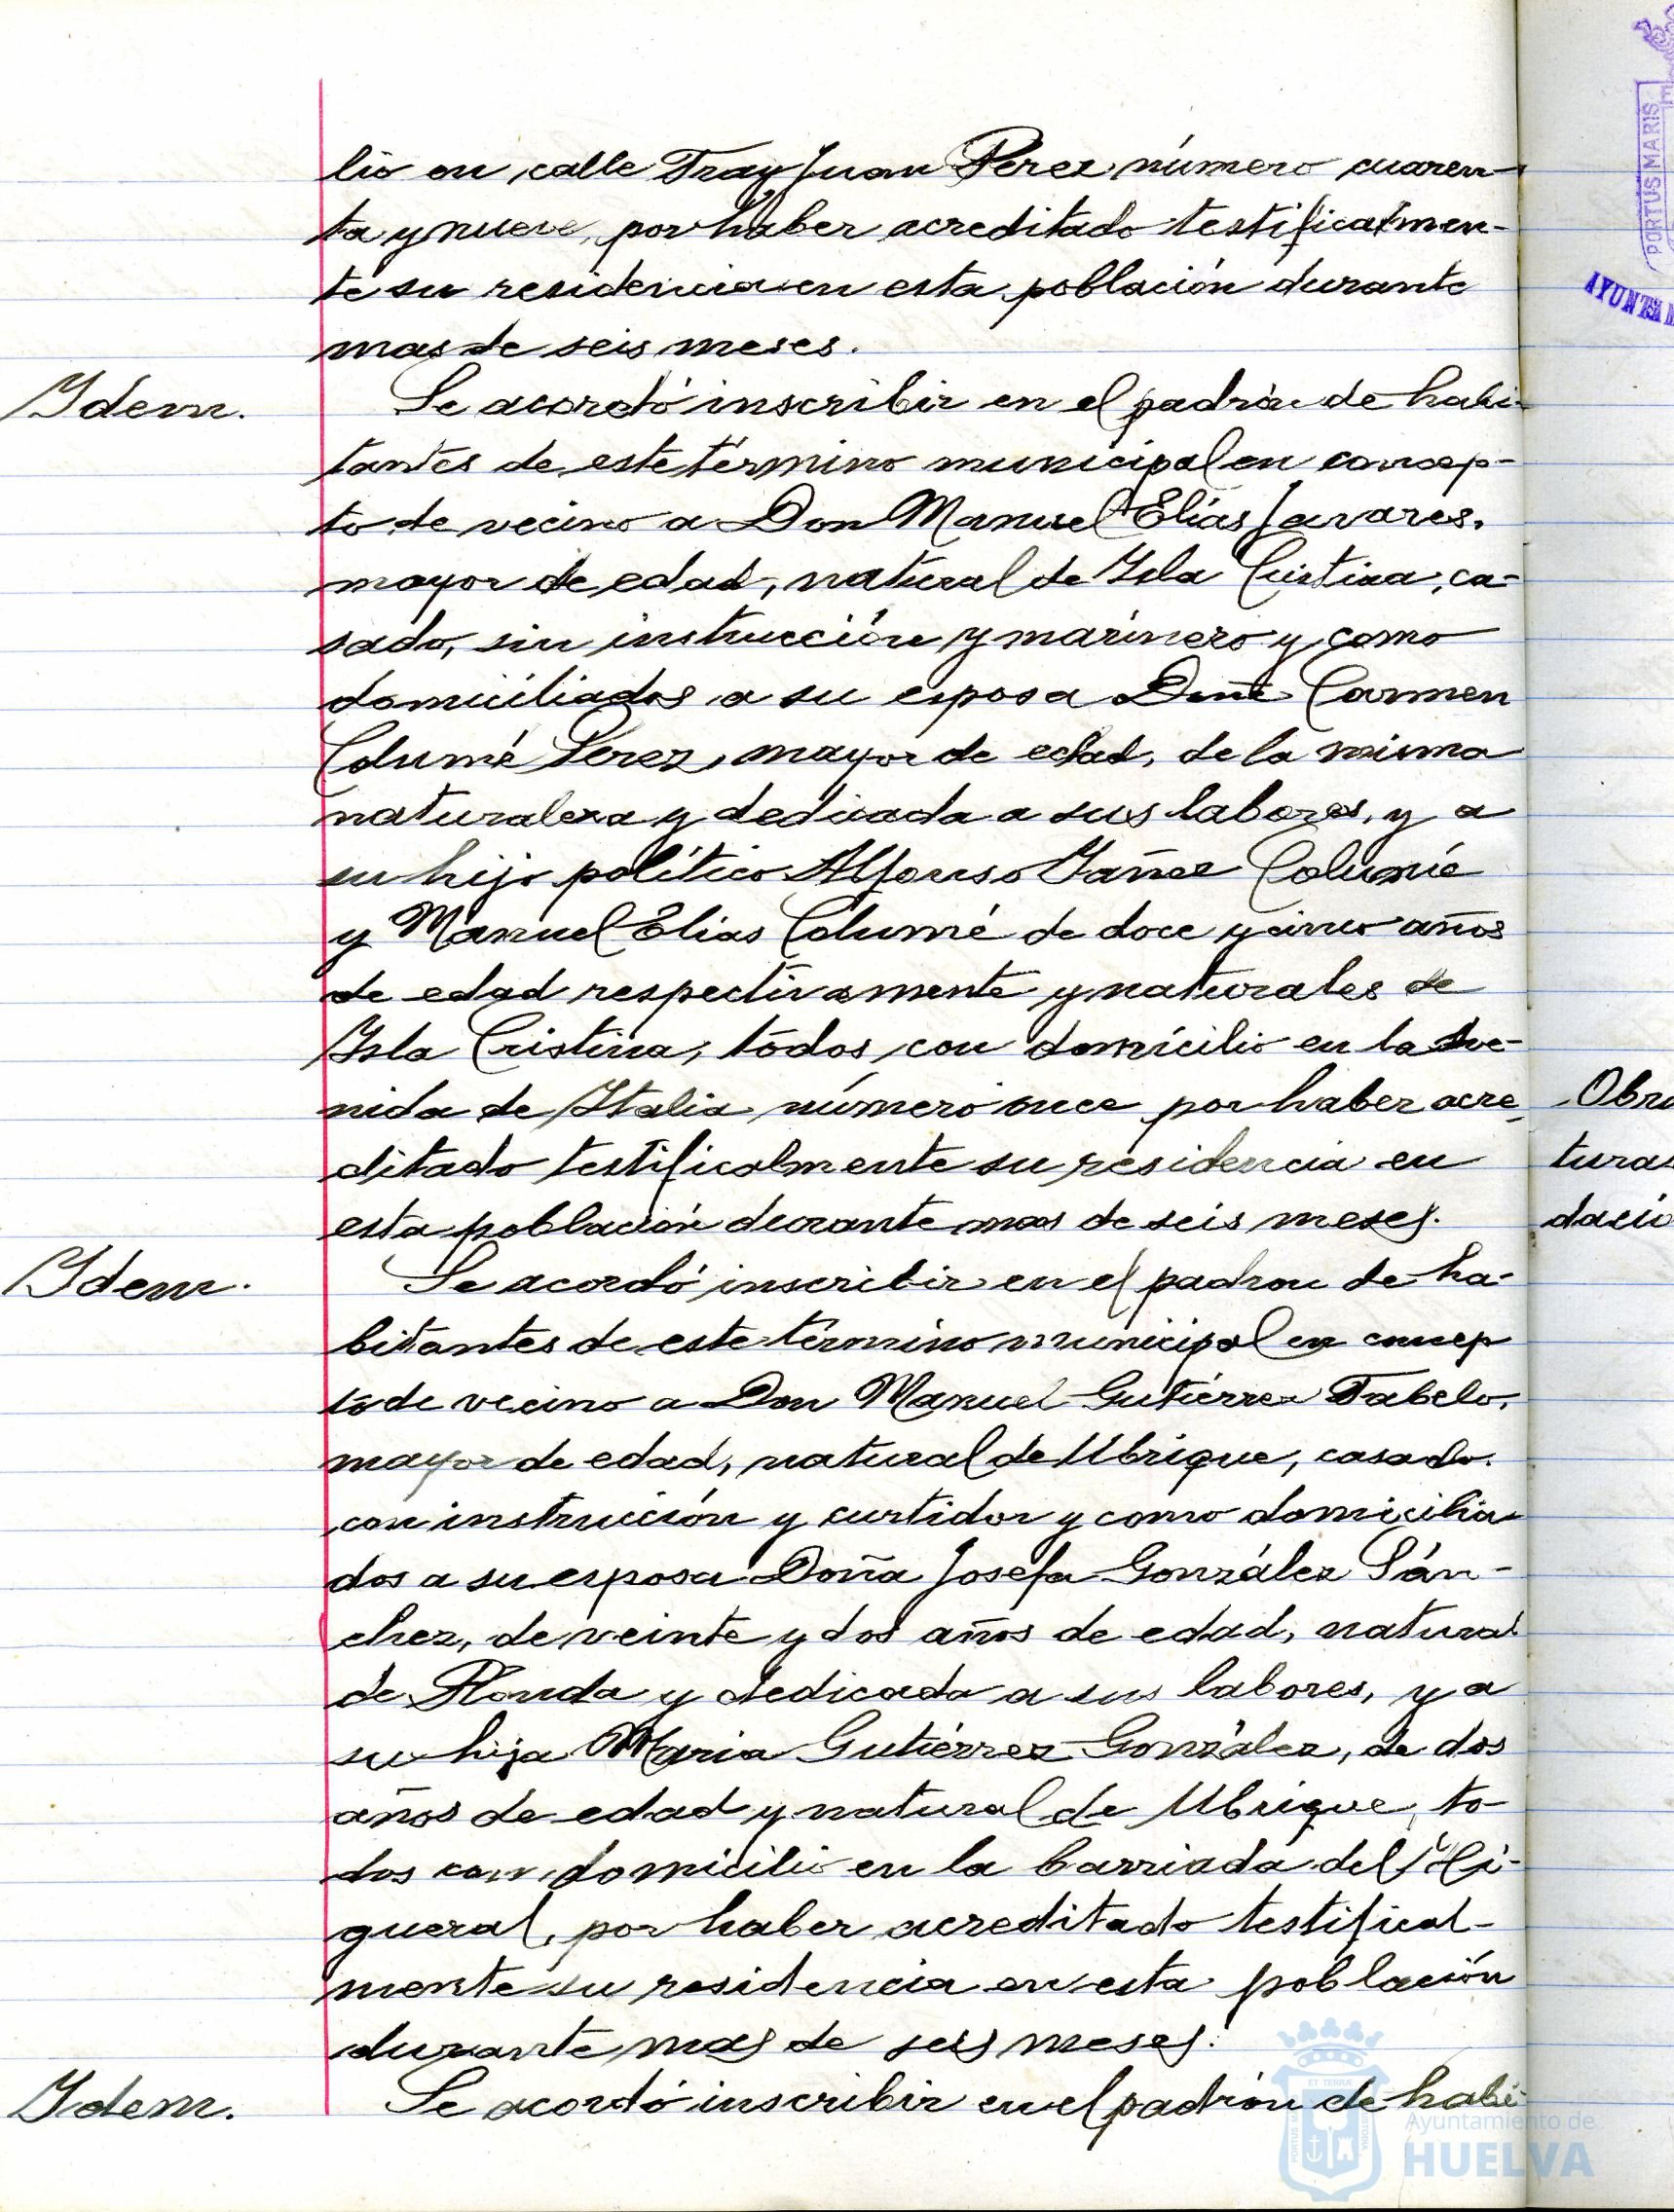 lio en calle Fray Juan Perez número cuaren-
ta y nueve, por haber acreditado testificalmen-
te su residencia en esta población durante
mas de seis meses.
Idem.
Se acordó inscribir en el padrón de habi-
tantes de este término municipal en concep-
to de vecino a Don Manuel Elías Javares,
mayor de edad, natural de Isla Cristina, ca-
sado, sin instrucción y marinero y como
domiciliados a su esposa Doña Carmen
Columé Perez, mayor de edad, de la misma
naturaleza y dedicada a sus labores, y a
su hijo político Alfonso Yañez Columé
y Manuel Elias Columé de doce y cinco años
de edad respectivamente y naturales de
Isla Cristina, todos con domicilio en la Ave-
nida de Italia número once por haber acre-
ditado testificalmente su residencia en
esta población durante mas de seis meses.
Idem.
Se acordó inscribir en el padron de ha-
bitantes de este término municipal en concep
to de vecino a Don Manuel Gutiérrez Fabelo,
mayor de edad, natural de Ubrique, casado.
con instrucción y curtidor y como domicilia-
dos a su esposa Doña Josefa González Sán-
chez, de veinte y dos años de edad, natural
de Ronda y dedicada a sus labores, y a
su hija Maria Gutiérrez González, de dos
años de edad y natural de Ubrique, to-
dos con domicilio en la barriada del Hi-
gueral, por haber acreditado testifical-
mente su residencia en esta población
durante mas de seis meses.
Idem.
Se acordó inscribir en el padrón de habi-
Obra
turas
dació
PORTUS MARIS
AYUNTAM
Ayuntamiento de
HUELVA